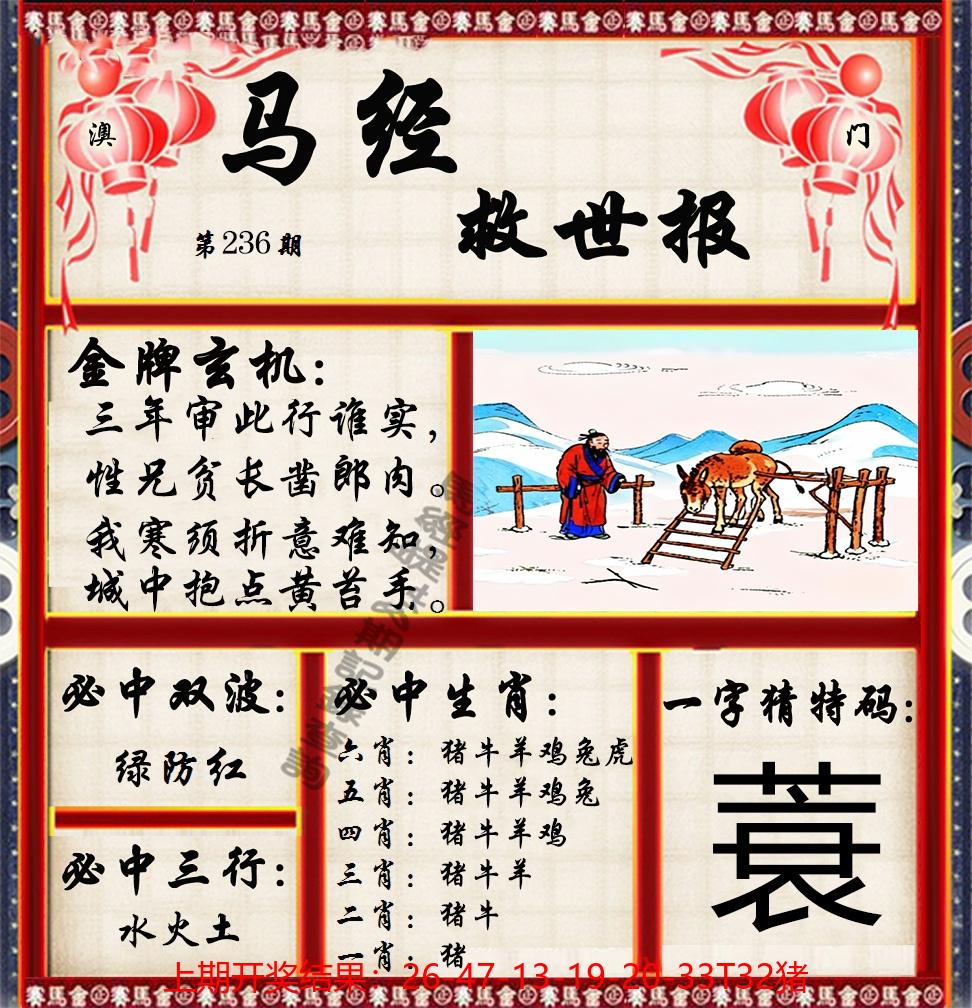 澳
门
马经
救世报
第236期
金牌玄机：
三年审此行谁实，
性兄贫长凿郎肉。
我寒须折意难知，
城中抱点黄苔手。
必中双波：
绿防红
必中三行：
水火土
必中生肖：
六肖：猪牛羊鸡兔虎
五肖：猪牛羊鸡兔
四肖：猪牛羊鸡
三肖：猪牛羊
二肖：猪牛
一肖：猪
一字猜特码：
蓑
上期开奖结果：26-47-13-19-20-33T32猪